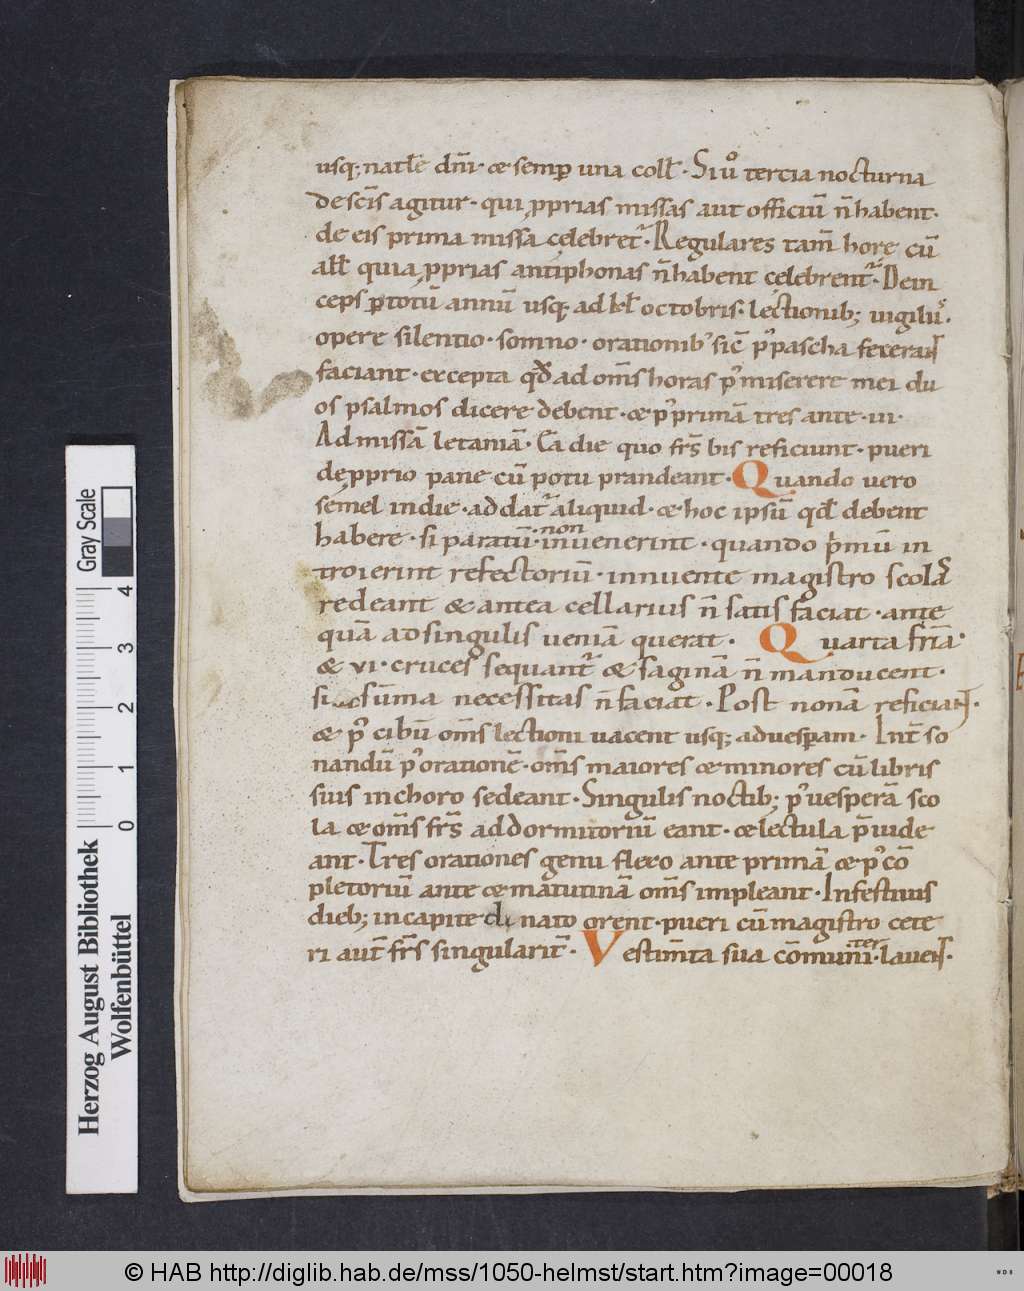 usq; natłe dñi · & semp una coll̄ · Si uº tercia nocturna
de sc̄is agitur · qui pprias missas aut officiū ñ habent ·
de eis prima missa celebret᷑ · Regulares tam̄ hore cū
all̄ quia pprias antiphonas ñ habent celebrent᷑ · Dein
ceps p totū annū usq; ad kł octobris · lectionib; uigilii᷑ ·
opere silentio · somno · orationib᷒ sic̄ p᷒ pascha fecerant
faciant · excepta qđ ad om̄s horas p᷒ miserere mei du
os psalmos dicere debent · & p᷒ primā tres ante · iii ·
Ad missā letaniā · Eā die quo fr̄s bis reficiunt · pueri
de pprio pane cū potu prandeant · Quando uero
semel in die · addat᷑ aliquid · & hoc ipsū qđ debent
habere · si paratū · non inuenerint · quando p̄mū in
troierint refectoriū · innuente magistro scola᷑
redeant & antea cellarius ñ satis faciat · ante
quā ad singulis ueniā querat · Quarta fr̄ia ·
& vi · cruces sequant᷑ & saginā ñ manducent ·
si sūma necessitas ñ faciat · Post nonā reficiant ·
& p᷒ cibū om̄s lectioni uacent usq; ad uespam · Int̄ so
nandū p᷒ orationē · om̄s maiores & minores cū libris
suis in choro sedeant · Singulis noctib; p᷒ uesperā sco
la & om̄s fr̄s ad dormitoriū eant · & lectula p̄uide
ant · Tres orationes genu flexo ante primā & p᷒ cō
pletoriū ante & matutinā om̄s impleant · In festiuis
dieb; in capite nato orent · pueri cū magistro cete
ri aut̄ fr̄s singularit̄ · Vestim̄ta sua cōmunit̄ ter · lauent ·
Gray Scale
4
3
2
1
0
Herzog August Bibliothek
Wolfenbüttel
© HAB http://diglib.hab.de/mss/1050-helmst/start.htm?image=00018